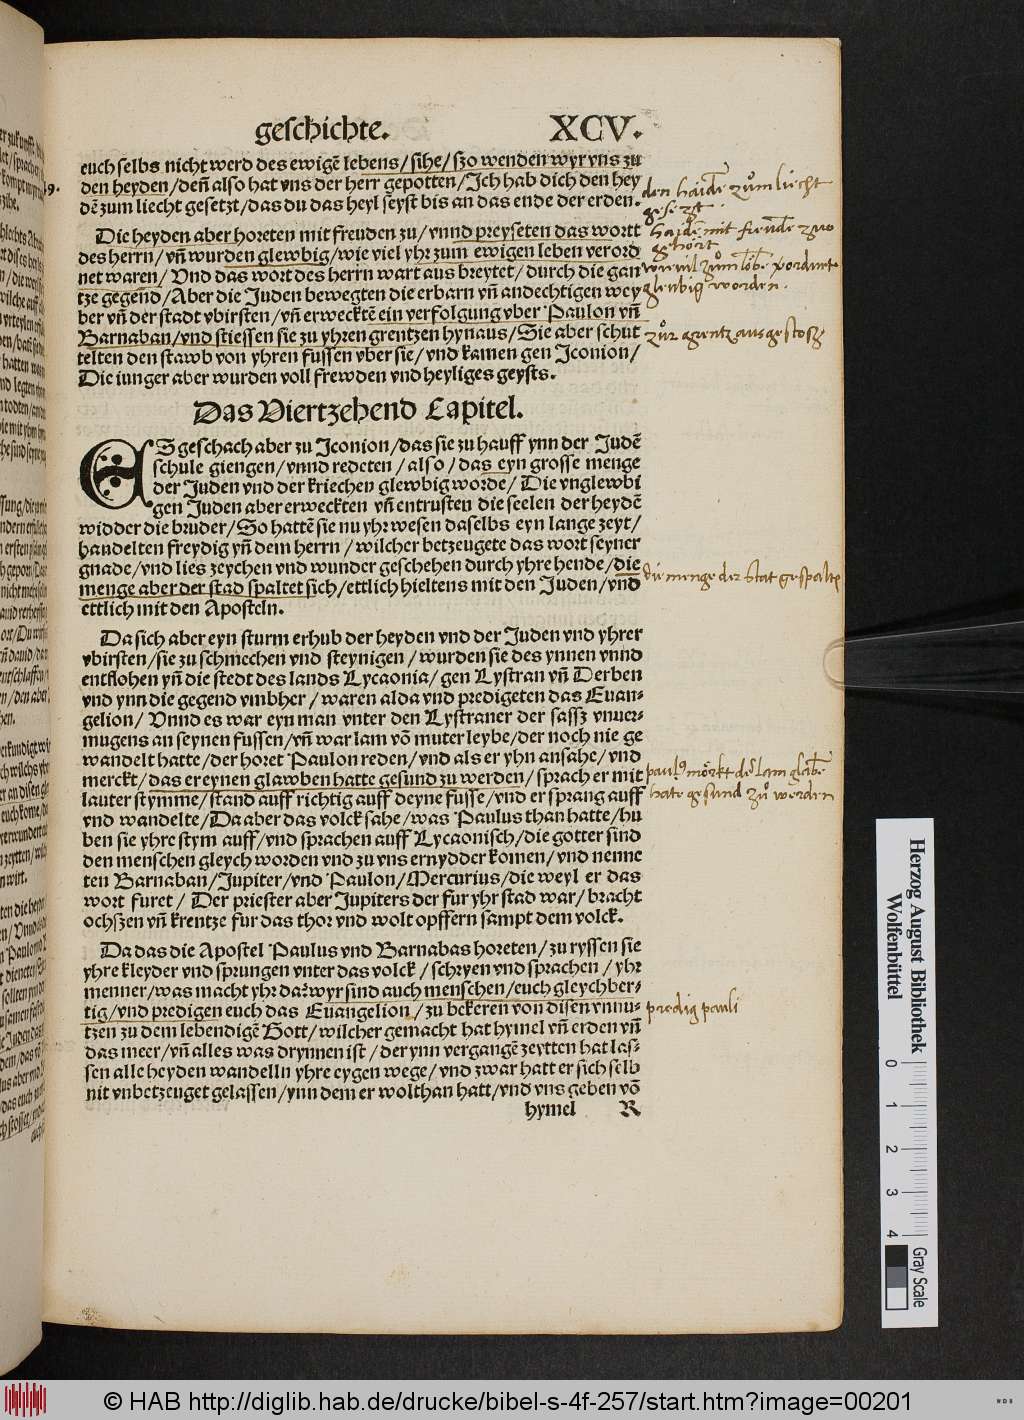 geschichte. XCV.
euch selbs nicht werd des ewigẽ lebens/sihe/szo wenden wyr vns zu
den heyden/deñ also hat vns der herr gepotten/Ich hab dich den hey
dẽ zum liecht gesetzt/das du das heyl seyst bis an das ende der erden.
Die heyden aber horeten mit freuden zu/vnnd preyseten das wortt
des herrn/vñ wurden glewbig/wie viel yhr zum ewigen leben verord
net waren/Vnd das wort des herrn wart aus breytet/durch die gan
tze gegend/Aber die Juden bewegten die erbarn vñ andechtigen wey
ber vñ der stadt vbirsten/vñ erwecktẽ ein verfolgung vber Paulon vñ
Barnaban/vnd stiessen sie zu yhren grentzen hynaus/Sie aber schut
telten den stawb von yhren fussen vber sie/vnd kamen gen Iconion/
Die iunger aber wurden voll frewden vnd heyliges geysts.
den haidẽ zům liecht
gesezt
haidẽ mit freudẽ zuo
gehört
wie vil zům lebẽ verordnet
gleubig worden.
zůr grentz ausgestosẽ
Das Viertzehend Capitel.
ES geschach aber zu Iconion/das sie zu hauff ynn der Judẽ
schule giengen/vnnd redeten/also/das eyn grosse menge
der Juden vnd der kriechen glewbig worde/Die vnglewbi
gen Juden aber erweckten vñ entrusten die seelen der heydẽ
widder die bruder/So hattẽ sie nu yhr wesen daselbs eyn lange zeyt/
handelten freydig yñ dem herrn/wilcher betzeugete das wort seyner
gnade/vnd lies zeychen vnd wunder geschehen durch yhre hende/die
menge aber der stad spaltet sich/ettlich hieltens mit den Juden/vnd
ettlich mit den Aposteln.
die menge der stat gespaltẽ
Da sich aber eyn sturm erhub der heyden vnd der Juden vnd yhrer
vbirsten/sie zu schmechen vnd steynigen/wurden sie des ynnen vnnd
entflohen yñ die stedt des lands Lycaonia/gen Lystran vñ Derben
vnd ynn die gegend vmbher/waren alda vnd predigeten das Euan-
gelion/Vnnd es war eyn man vnter den Lystraner der sassz vnuer-
mugens an seynen fussen/vñ war lam võ muter leybe/der noch nie ge
wandelt hatte/der horet Paulon reden/vnd als er yhn ansahe/vnd
merckt/das er eynen glawben hatte gesund zu werden/sprach er mit
lauter stymme/stand auff richtig auff deyne fusse/vnd er sprang auff
vnd wandelte/Da aber das volck sahe/was Paulus than hatte/hu
ben sie yhre stym auff/vnd sprachen auff Lycaonisch/die götter sind
den menschen gleych worden vnd zu vns ernydder komen/vnd nenne
ten Barnaban/Jupiter/vnd Paulon/Mercurius/die weyl er das
wort furet/Der priester aber Jupiters der fur yhr stad war/bracht
ochszen vñ krentze fur das thor vnd wolt opffern sampt dem volck.
mörkt der lam glabẽ
hate gesund zů werden
Da das die Apostel Paulus vnd Barnabas horeten/zu ryssen sie
yhre kleyder vnd sprungen vnter das volck/schryen vnd sprachen/yhr
menner/was macht yhr da? wyr sind auch menschen/euch gleychber-
tig/vnd predigen euch das Euangelion/zu bekeren von disen vnnu-
tzen zu dem lebendigẽ Gott/wilcher gemacht hat hymel vñ erden vñ
das meer/vñ alles was drynnen ist/der ynn vergangẽ zeytten hat las-
sen alle heyden wandelln yhre eygen wege/vnd zwar hatt er sich selb
nit vnbetzeuget gelassen/ynn dem er wolthan hatt/vnd vns geben võ
predig pauli
hymel R
Herzog August Bibliothek
Wolfenbüttel
0 1 2 3 4
Gray Scale
© HAB http://diglib.hab.de/drucke/bibel-s-4f-257/start.htm?image=00201